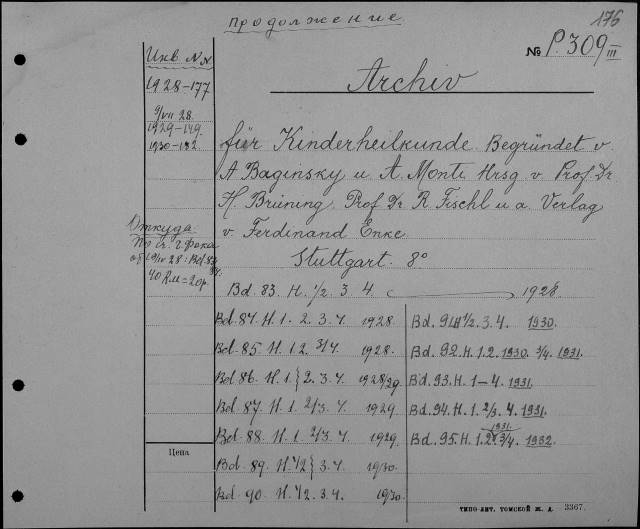 продолжение
176
№ P.309 III
Инв. NN
1928–177
9/VII 28.
1929–149.
1930–132.
Archiv
für Kinderheilkunde. Begründet v.
A Baginsky u. A. Monti. Hrsg v. Prof. Dr
H. Brüning, Prof Dr R. Fischl u a. Verlag
v. Ferdinand Enke
Stuttgart. 8°
Откуда
По сч. г. Фока
от 19/IV 28: Bd 83
40 R.M = 20 р.
Bd. 83. H. 1/2. 3. 4. 1928.
Bd. 84. H. 1. 2. 3. 4. 1928.
Bd. 85. H. 1. 2. 3/4. 1928.
Bd. 86. H. 1. } 2. 3. 4. 1928/29
Bd. 87. H. 1. 2/3. 4. 1929.
Bd. 88. H. 1. 2/3. 4. 1929.
Bd. 89. H. 1/2 } 3. 4. 1930.
Bd. 90. H. 1/2. 3. 4. 1930.
Bd. 91 H 1/2. 3. 4. 1930.
Bd. 92. H. 1. 2. 1930. 3/4. 1931.
Bd. 93. H. 1–4. 1931.
Bd. 94. H. 1. 2/3. 4. 1931.
1931.
Bd. 95. H. 1. 2. 3/4. 1932.
Цена
ТИПО-ЛИТ. ТОМСКОЙ Ж. Д. 3367.